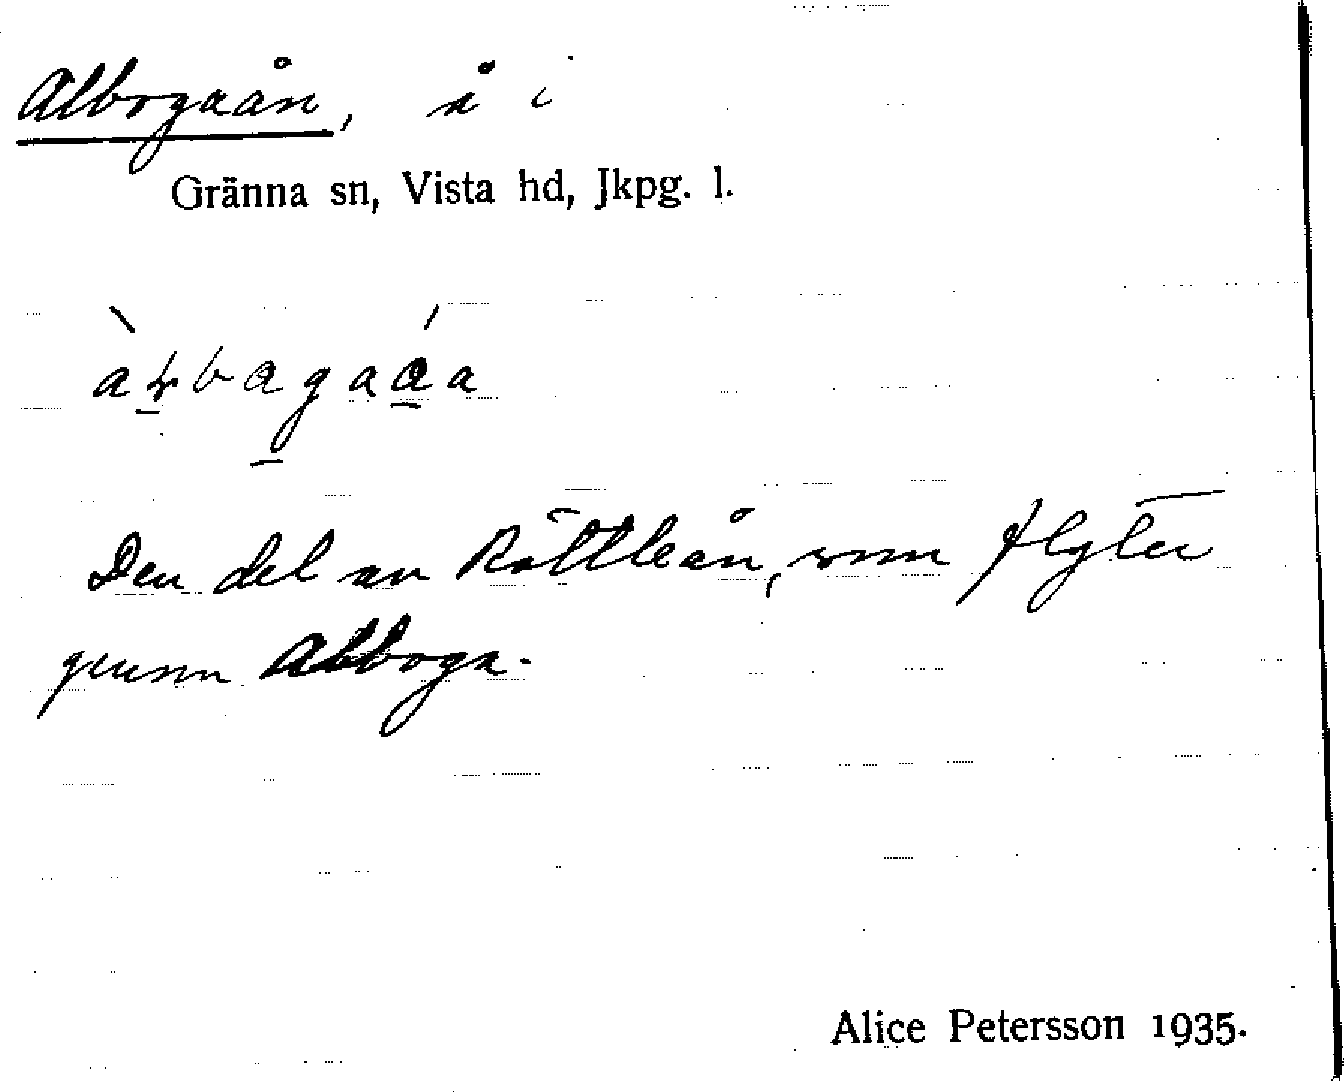 Albogaån, å i
Gränna sn, Vista hd, Jkpg. l.
Den del av Röttleån, som flyter
genom Alboga.
Alice Petersson 1935.